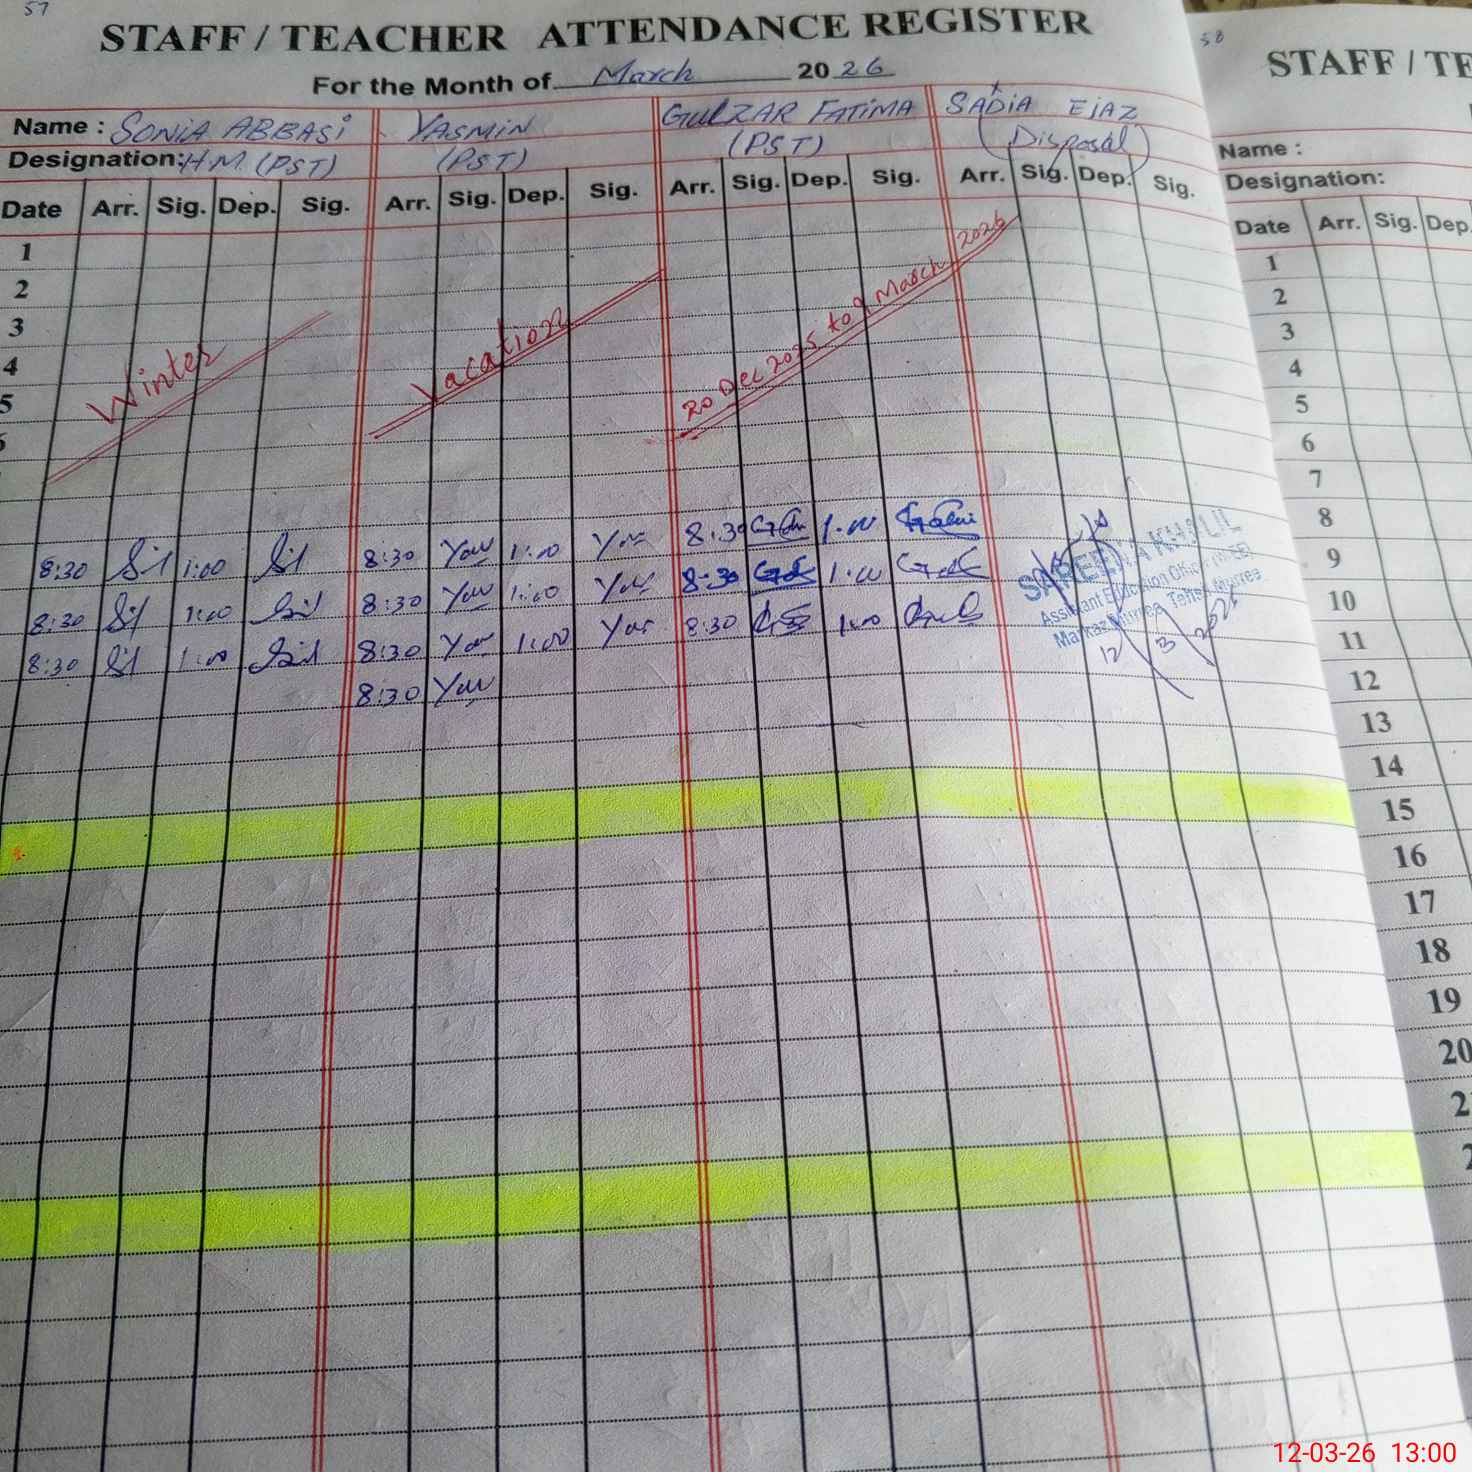 57
STAFF / TEACHER ATTENDANCE REGISTER
For the Month of March 2026
Name : SONIA ABBASI YASMIN GULZAR FATIMA SADIA EJAZ
Designation: H.M (PST) (PST) (PST) (Disposal)
Date Arr. Sig. Dep. Sig. Arr. Sig. Dep. Sig. Arr. Sig. Dep. Sig. Arr. Sig. Dep. Sig.
1
2
3
4
5
Winter Vacation 20 Dec 2025 to 9 March 2026
8:30 1:00 8:30 1:00 8:30 1:00
8:30 1:00 8:30 1:00 8:30 1:00
8:30 1:00 8:30 1:00 8:30 1:00
8:30
KHALIL
Assistant Education Officer
Markaz Murree Tehsil Murree
12 3 2026
58
STAFF / TE
Name :
Designation:
Date Arr. Sig. Dep.
1
2
3
4
5
6
7
8
9
10
11
12
13
14
15
16
17
18
19
20
12-03-26 13:00